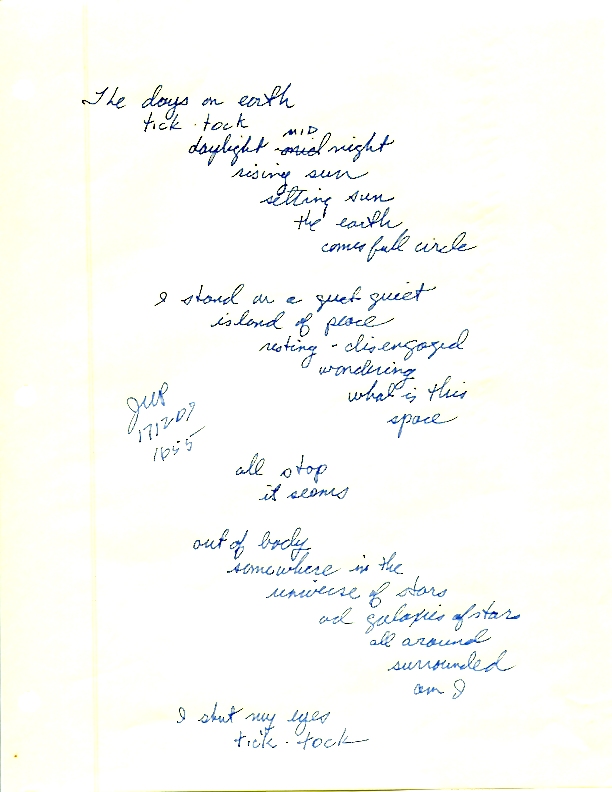 The days on earth
tick · tock
MID
daylight mid night
rising sun
setting sun
the earth
comes full circle
I stand on a quet quiet
island of peace
resting - disengaged
wondering
what is this
space
JWP
171207
1655
all stop
it seems
out of body
somewhere in the
universe of stars
ad galaxies of stars
all around
surrounded
am I
I shut my eyes
tick · tock